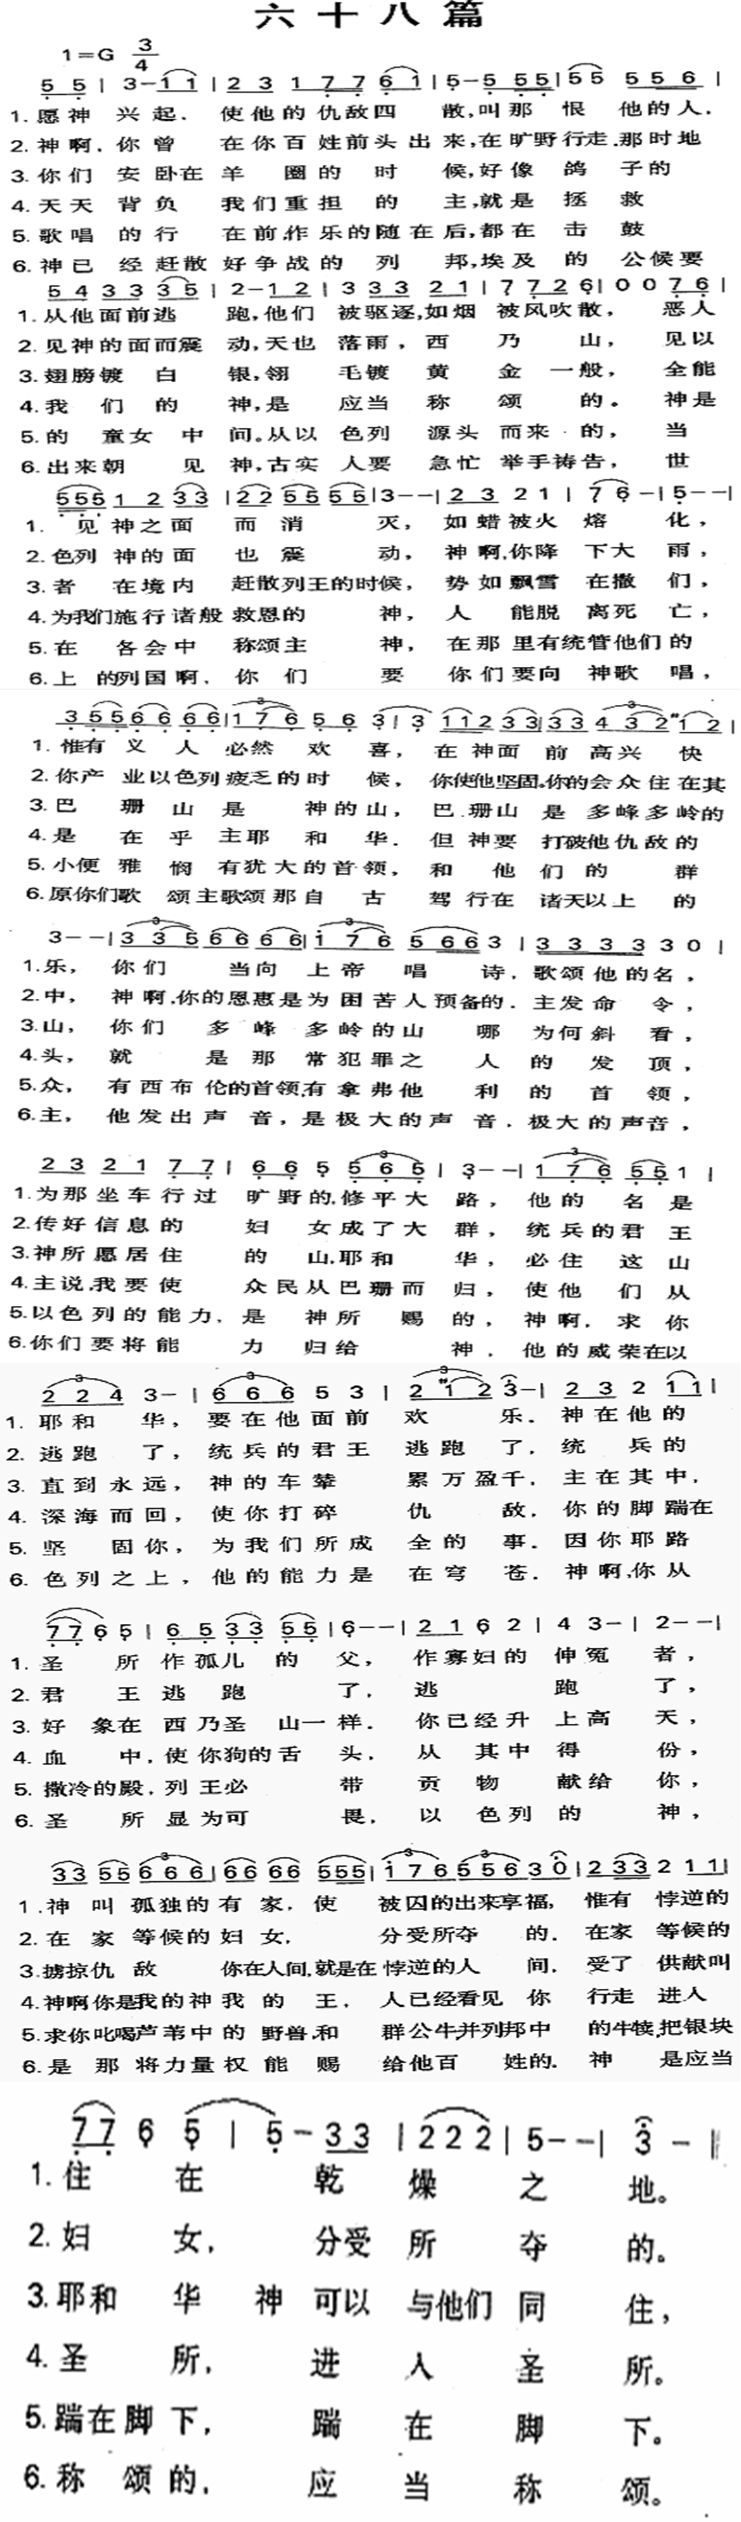 六十八篇
1=G 3/4
5 5 | 3-1 1 | 2 3 1 7 7 6 1 | 5-5 5 5 | 5 5 5 5 6 |
1.愿神兴起.使他的仇敌四散,叫那恨他的人.
2.神啊.你曾在你百姓前头出来,在旷野行走.那时地
3.你们安卧在羊圈的时候,好像鸽子的
4.天天背负我们重担的主,就是拯救
5.歌唱的行在前,作乐的随在后,都在击鼓
6.神已经赶散好争战的列邦,埃及的公候要
5 4 3 3 3 5 | 2-1 2 | 3 3 3 2 1 | 7 7 2 6 | 0 0 7 6 |
1.从他面前逃跑,他们被驱逐,如烟被风吹散,恶人
2.见神的面而震动,天也落雨,西乃山,见以
3.翅膀镀白银,翎毛镀黄金一般,全能
4.我们的神,是应当称颂的。神是
5.的童女中间。从以色列源头而来的,当
6.出来朝见神,古实人要急忙举手祷告,世
5 5 5 1 2 3 3 | 2 2 5 5 5 5 | 3-- | 2 3 2 1 | 7 6-| 5--|
1.见神之面而消灭,如蜡被火熔化,
2.色列神的面也震动,神啊,你降下大雨,
3.者在境内赶散列王的时候,势如飘雪在撒们,
4.为我们施行诸般救恩的神,人能脱离死亡,
5.在各会中称颂主神,在那里有统管他们的
6.上的列国啊,你们要你们要向神歌唱,
3 5 5 6 6 6 6 | 1 7 6 5 6 3 | 3 1 1 2 3 3 | 3 3 4 3 2 1 2 |
1.惟有义人必然欢喜,在神面前高兴快
2.你产业以色列疲乏的时候,你使他坚固。你的会众住在其
3.巴珊山是神的山,巴.珊山是多峰多岭的
4.是在乎主耶和华.但神要打破他仇敌的
5.小便雅悯有犹大的首领,和他们的群
6.原你们歌颂主歌颂那自古驾行在诸天以上的
3--| 3 3 5 6 6 6 6 | 1 7 6 5 6 6 3 | 3 3 3 3 3 3 0 |
1.乐,你们当向上帝唱诗.歌颂他的名,
2.中,神啊,你的恩惠是为困苦人预备的.主发命令,
3.山,你们多峰多岭的山哪为何斜看,
4.头,就是那常犯罪之人的发顶,
5.众,有西布伦的首领,有拿弗他利的首领,
6.主,他发出声音,是极大的声音.极大的声音,
2 3 2 1 7 7 | 6 6 5 5 6 5 | 3--| 1 7 6 5 5 1 |
1.为那坐车行过旷野的,修平大路,他的名是
2.传好信息的妇女成了大群,统兵的君王
3.神所愿居住的山,耶和华,必住这山
4.主说,我要使众民从巴珊而归,使他们从
5.以色列的能力,是神所赐的,神啊,求你
6.你们要将能力归给神.他的威荣在以
2 2 4 3-| 6 6 6 5 3 | 2 1 2 3-| 2 3 2 1 1 |
1.耶和华,要在他面前欢乐.神在他的
2.逃跑了,统兵的君王逃跑了,统兵的
3.直到永远,神的车辇累万盈千.主在其中.
4.深海而回,使你打碎仇敌,你的脚踹在
5.坚固你,为我们所成全的事.因你耶路
6.色列之上,他的能力是在穹苍.神啊,你从
7 7 6 5 | 6 5 3 3 5 5 | 6--| 2 1 6 2 | 4 3-| 2--|
1.圣所作孤儿的父,作寡妇的伸冤者,
2.君王逃跑了,逃跑了,
3.好象在西乃圣山一样.你已经升上高天,
4.血中,使你狗的舌头,从其中得份,
5.撒冷的殿,列王必带贡物献给你,
6.圣所显为可畏,以色列的神,
3 3 5 5 6 6 6 | 6 6 6 6 5 5 5 | 1 7 6 5 5 6 3 0 | 2 3 3 2 1 1 |
1.神叫孤独的有家,使被囚的出来享福,惟有悖逆的
2.在家等候的妇女,分受所夺的.在家等候的
3.掳掠仇敌你在人间,就是在悖逆的人间,受了供献叫
4.神啊你是我的神我的王,人已经看见你行走进人
5.求你叱喝芦苇中的野兽,和群公牛,并列邦中的牛犊,把银块
6.是那将力量权能赐给他百姓的.神是应当
7 7 6 5 | 5-3 3 | 2 2 2 | 5--| 3-||
1.住在乾燥之地。
2.妇女,分受所夺的。
3.耶和华神可以与他们同住,
4.圣所,进人圣所。
5.踹在脚下,踹在脚下。
6.称颂的,应当称颂。